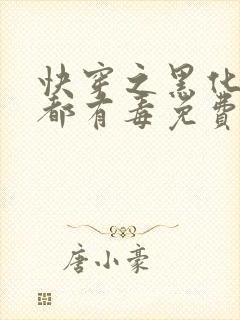 快穿之黑化
都有毒免费
唐小豪